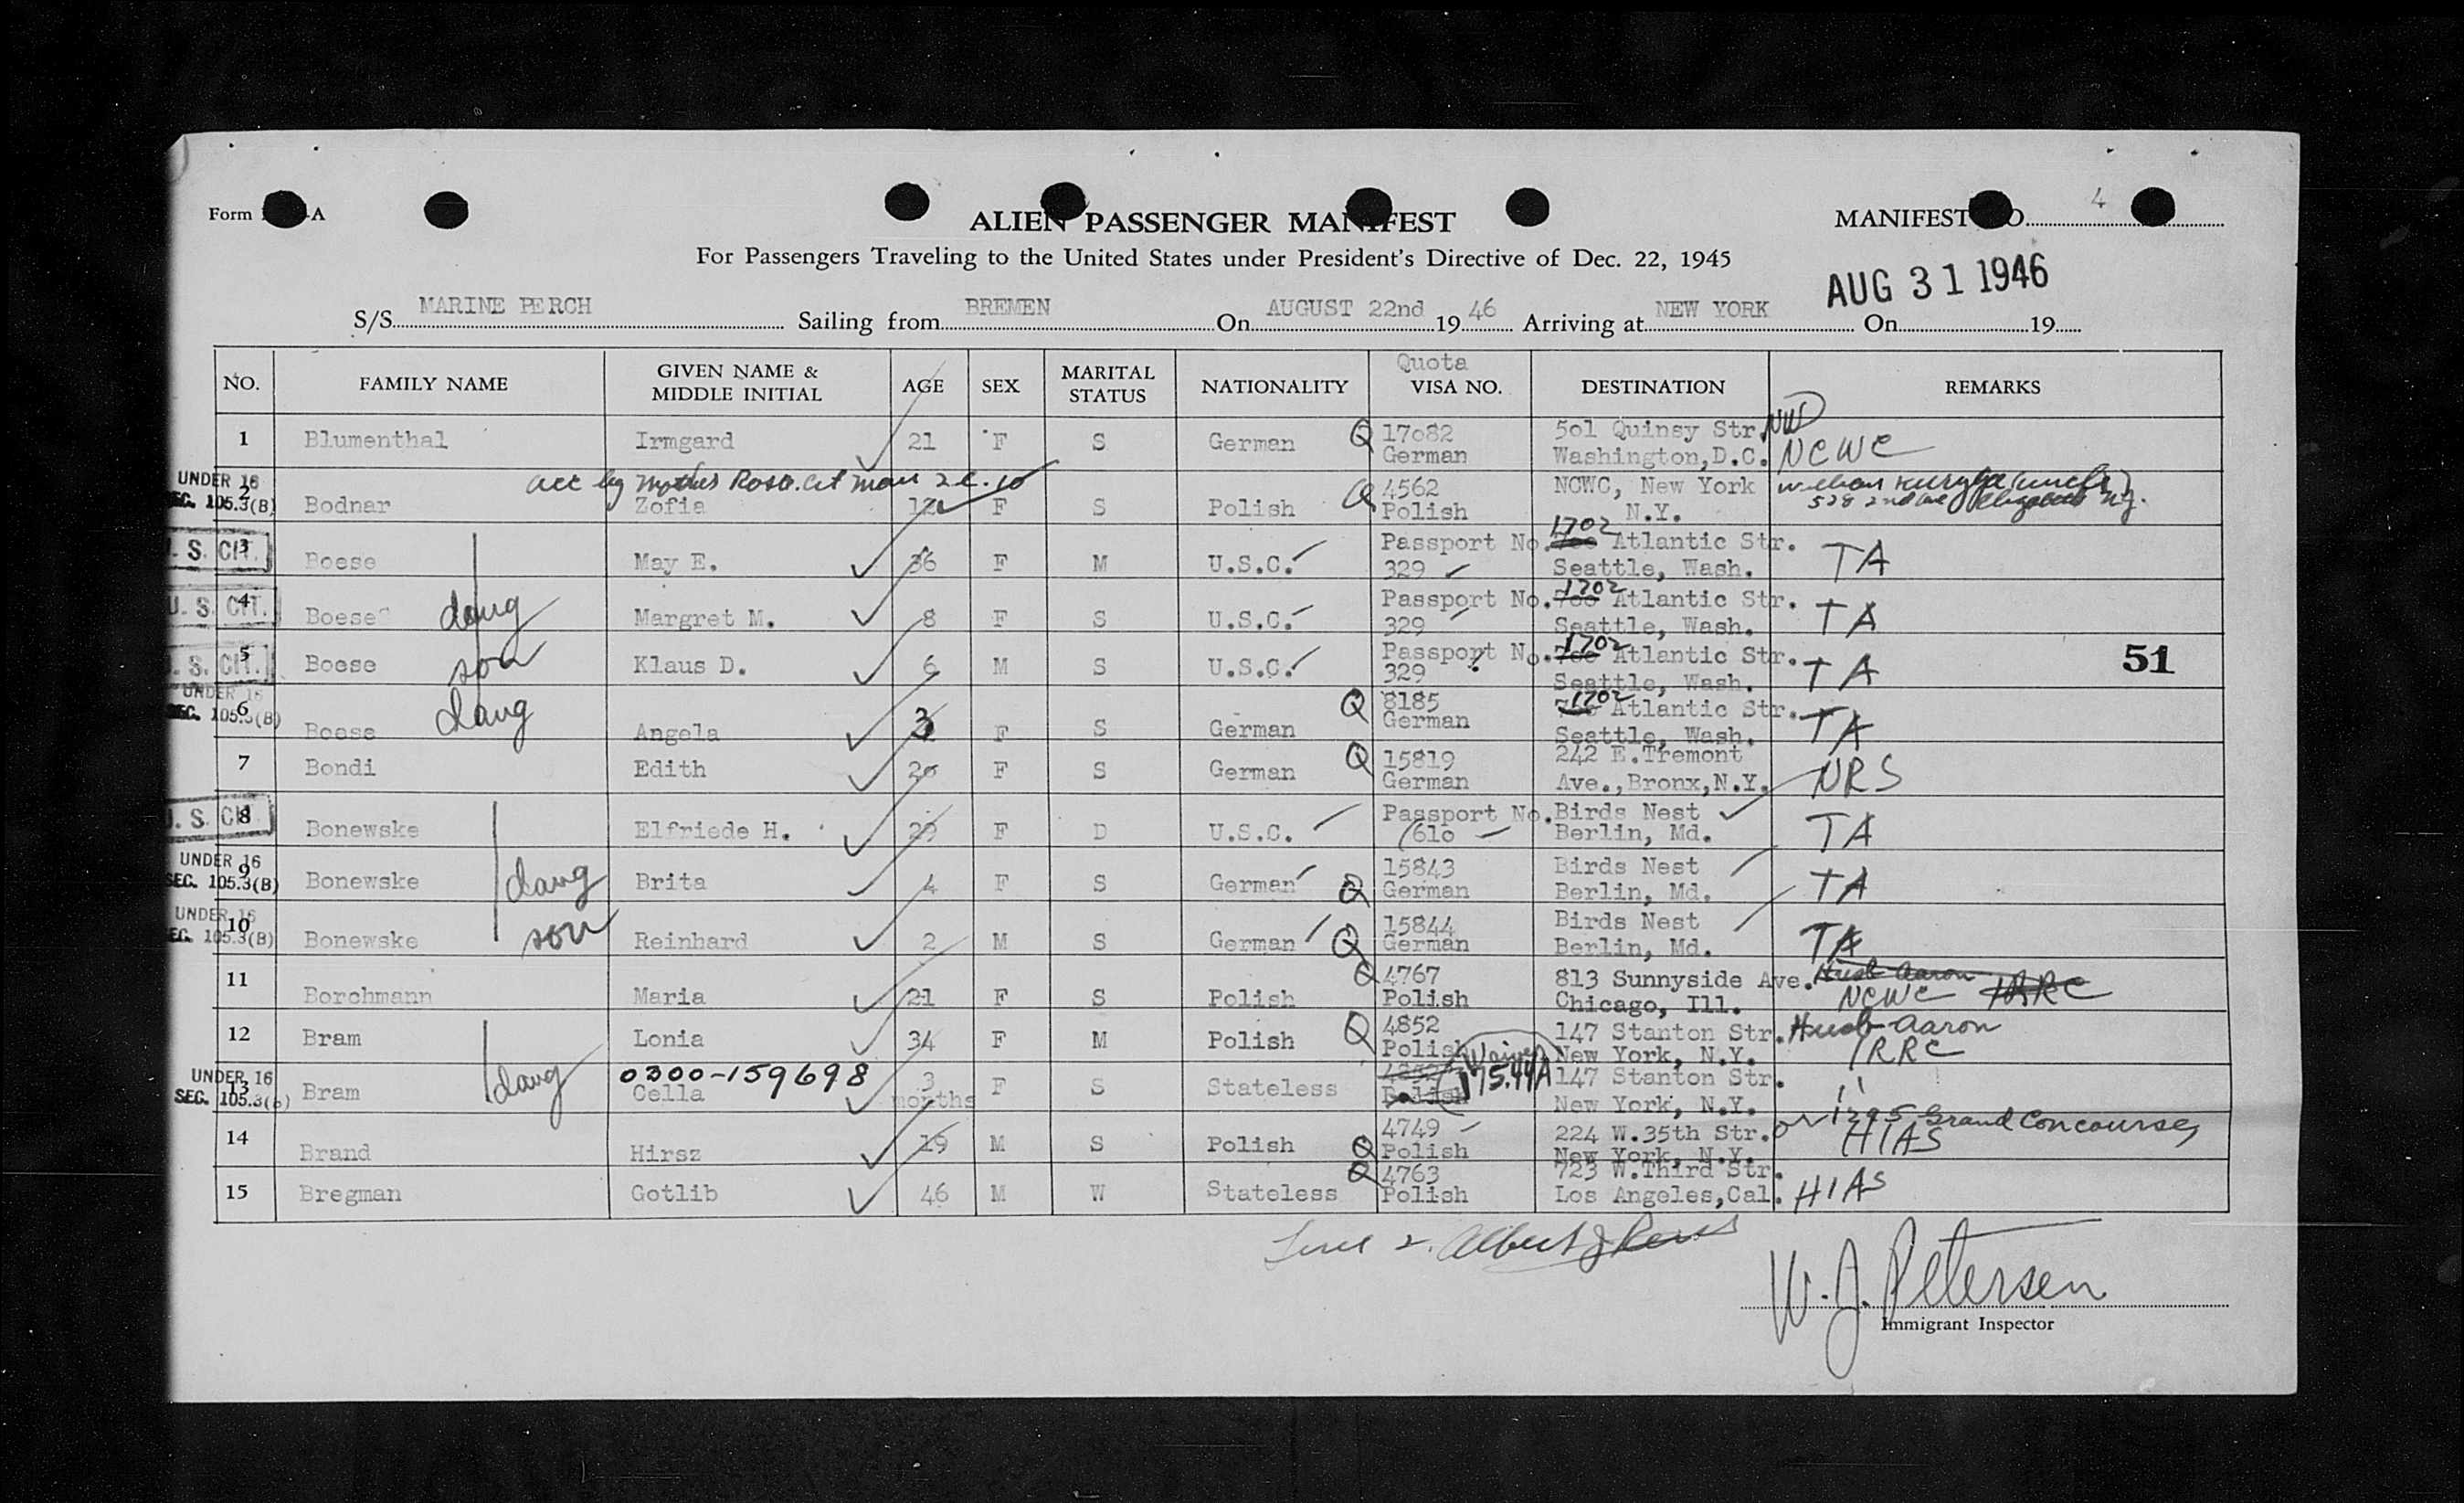 Form -A
ALIEN PASSENGER MANIFEST
MANIFEST NO. 4
For Passengers Traveling to the United States under President's Directive of Dec. 22, 1945
AUG 31 1946
S/S MARINE PERCH Sailing from BREMEN On AUGUST 22nd 19 46 Arriving at NEW YORK On 19
NO. FAMILY NAME GIVEN NAME & MIDDLE INITIAL AGE SEX MARITAL STATUS NATIONALITY Quota VISA NO. DESTINATION REMARKS
1 Blumenthal Irmgard 21 F S German Q 17082 501 Quinsy Str. NW NCWC
German Washington,D.C.
UNDER 16 acc by mother Rosa
2 Bodnar Zofia 12 F S Polish Q 4562 NCWC, New York William (uncle)
SEC. 105.3(B) Polish N.Y. 528 2nd Ave Elizabeth N.J.
U. S. CIT. 3 Boese May E. 36 F M U.S.C. Passport No. 1702 Atlantic Str. TA
329 Seattle, Wash.
U. S. CIT. 4 Boese daug Margret M. 8 F S U.S.C. Passport No. 700 1702 Atlantic Str. TA
329 Seattle, Wash.
U. S. CIT. 5 Boese son Klaus D. 6 M S U.S.C. Passport No. 700 1702 Atlantic Str. TA 51
329 Seattle, Wash.
UNDER 16
6 Boese daug Angela 3 F S German Q 8185 1702 Atlantic Str. TA
SEC. 105.3(B) German Seattle, Wash.
7 Bondi Edith 20 F S German Q 15819 242 E.Tremont NRS
German Ave.,Bronx,N.Y.
U. S. CIT. 8 Bonewske Elfriede H. 29 F D U.S.C. Passport No. Birds Nest TA
610 Berlin, Md.
UNDER 16
9 Bonewske daug Brita 4 F S German Q 15843 Birds Nest TA
SEC. 105.3(B) German Berlin, Md.
UNDER 16
10 Bonewske son Reinhard 2 M S German Q 15844 Birds Nest TA
SEC. 105.3(B) German Berlin, Md.
11 Borchmann Maria 21 F S Polish Q 4767 813 Sunnyside Ave. Husb Aaron
Polish Chicago, Ill. NCWC IRRC
12 Bram Lonia 34 F M Polish Q 4852 147 Stanton Str. Husb Aaron
Polish New York, N.Y. IRRC
UNDER 16 0300-159698 Waiver
13 Bram daug Cella 3 months F S Stateless 4852 175.44A 147 Stanton Str. "
SEC. 105.3(B) Polish New York, N.Y.
14 Brand Hirsz 19 M S Polish Q 4749 224 W.35th Str. or 1295 Grand Concourse,
Polish New York, N.Y. HIAS
15 Bregman Gotlib 46 M W Stateless Q 4763 723 W.Third Str. HIAS
Polish Los Angeles,Cal.
Line 2. Albert J
W. J. Petersen
Immigrant Inspector